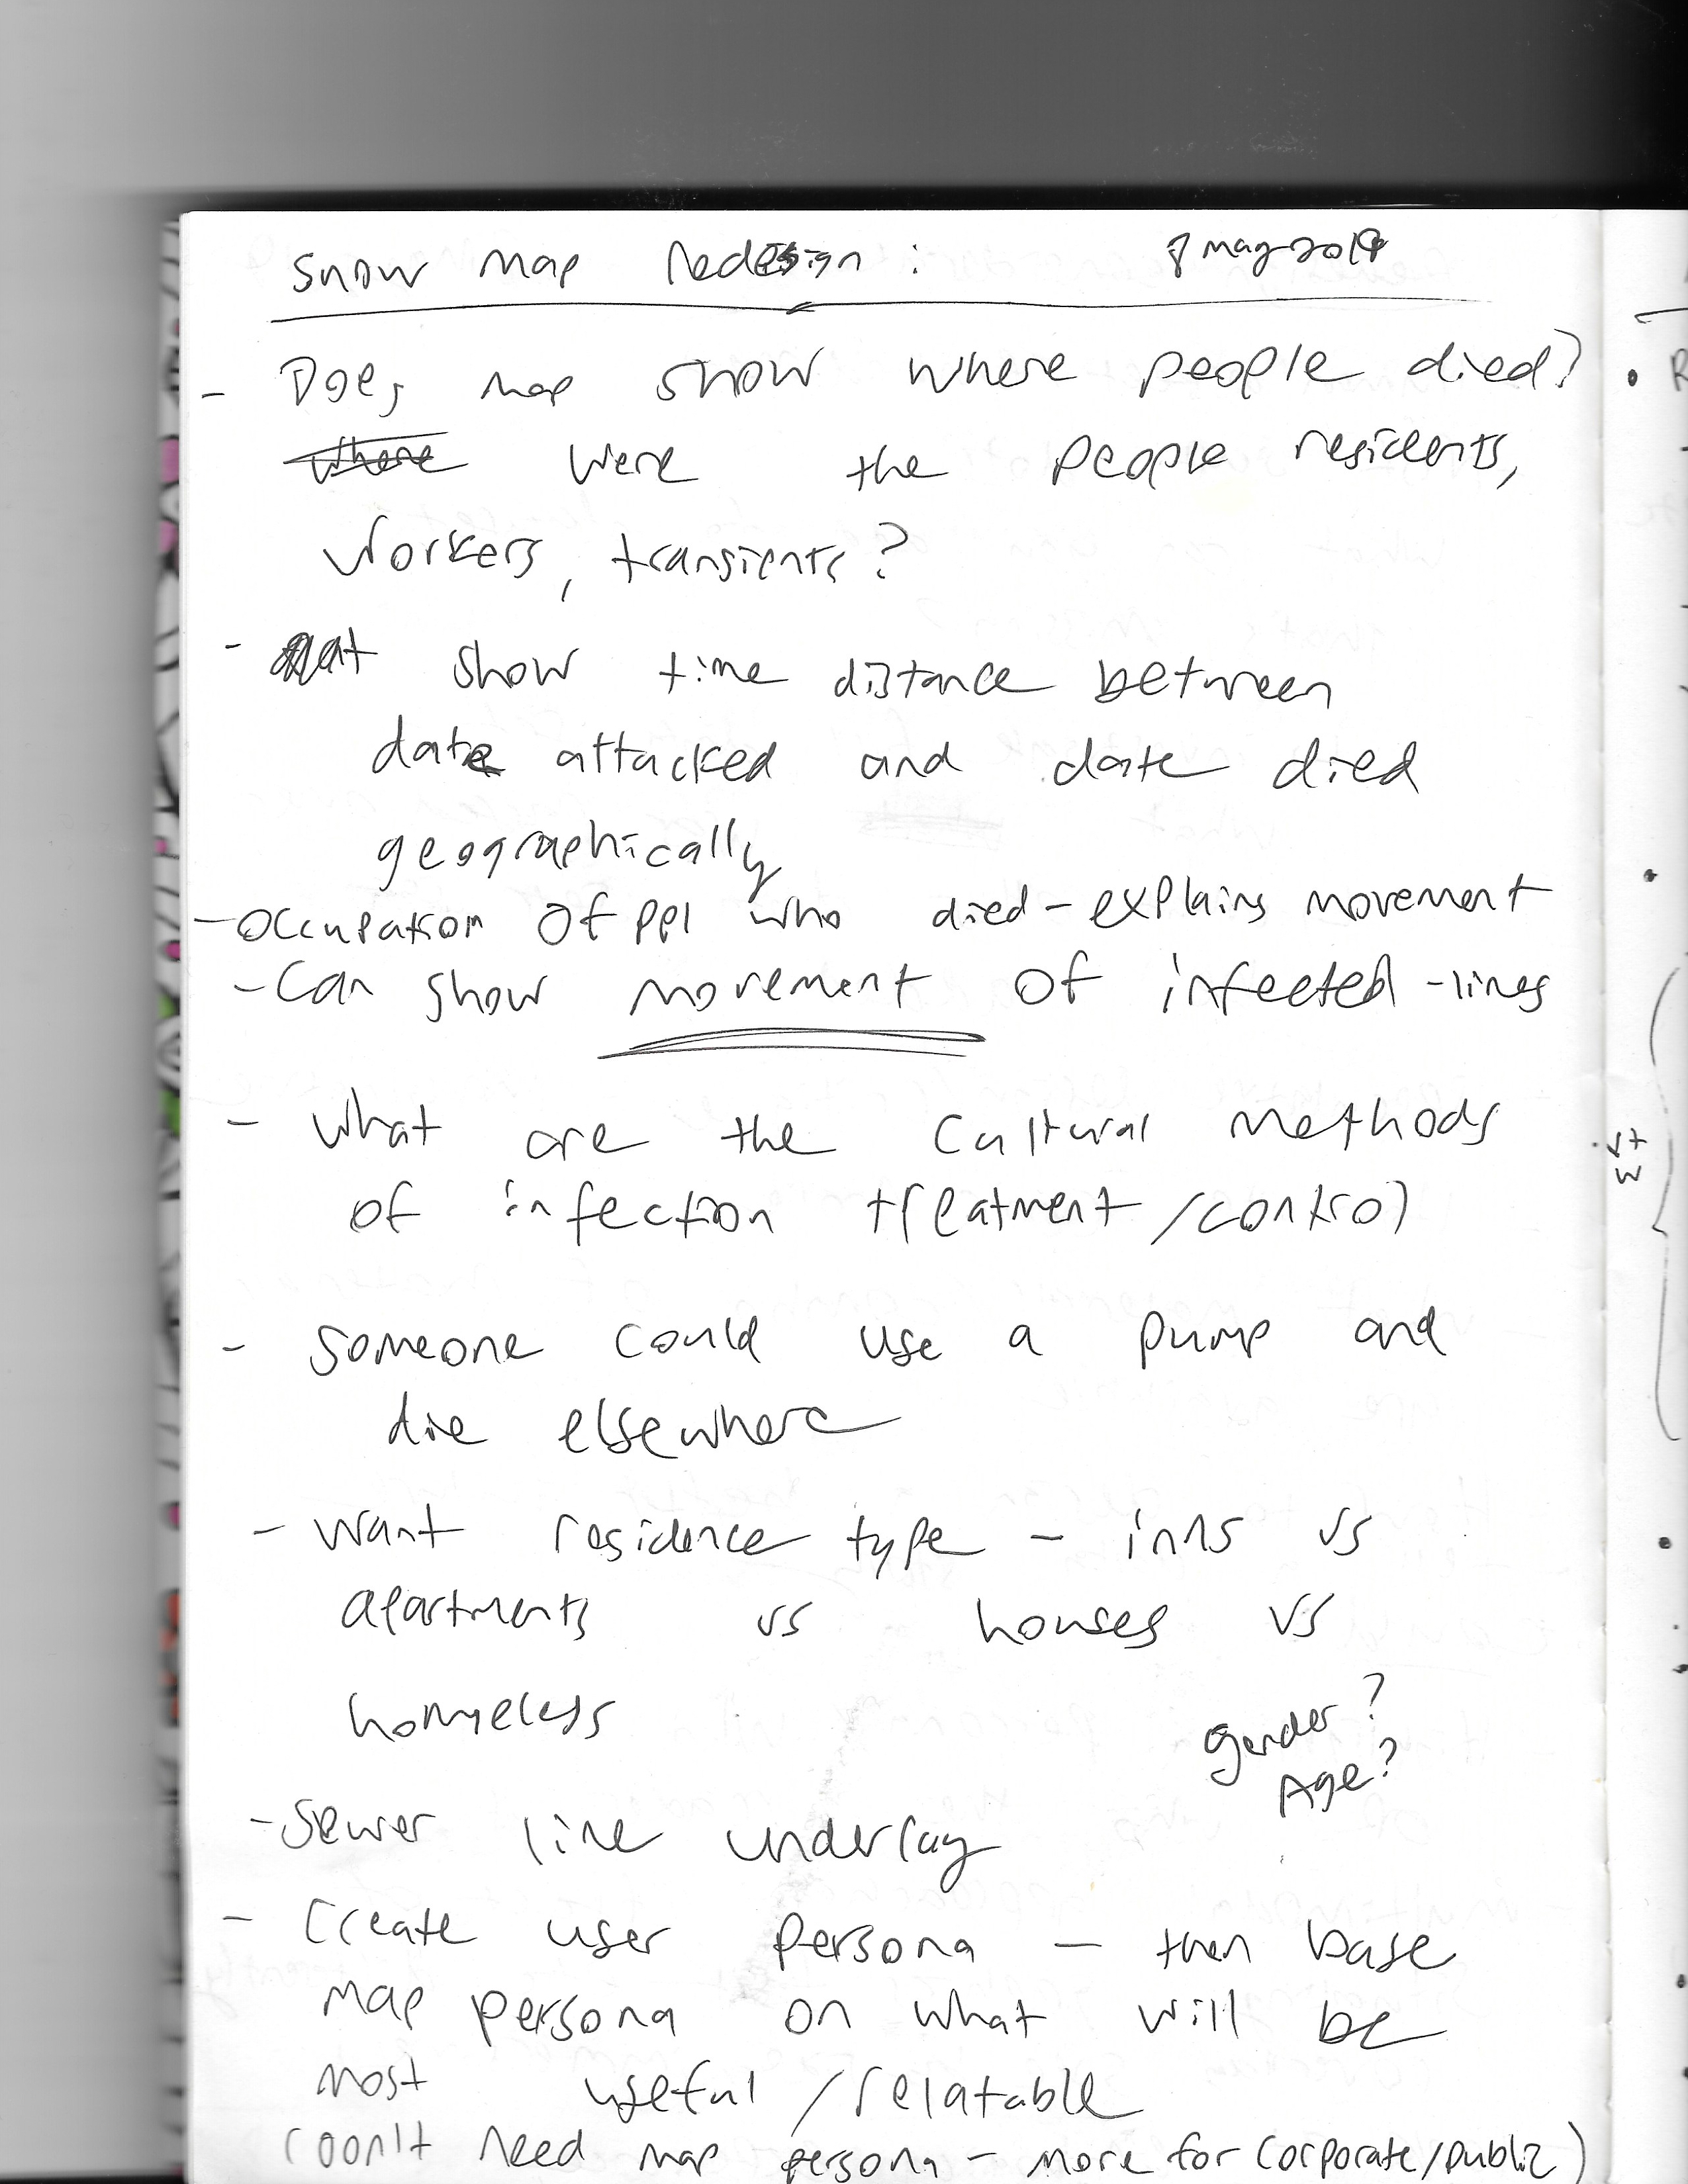 Snow Map Redesign : 8 May 2019
- Does map show where people died?
where were the people residents,
workers, transients?
- at show time distance between
date attacked and date died
geographically
- occupation of ppl who died - explains movement
- Can show movement of infected - lines
- What are the cultural methods
of infection treatment / control
- Someone could use a pump and
die elsewhere
- Want residence type - inns vs
apartments vs houses vs
homeless
gender?
Age?
- Sewer line underlay
- Create user persona - then base
map persona on what will be
most useful / relatable
(Don't need map persona - more for corporate/public)